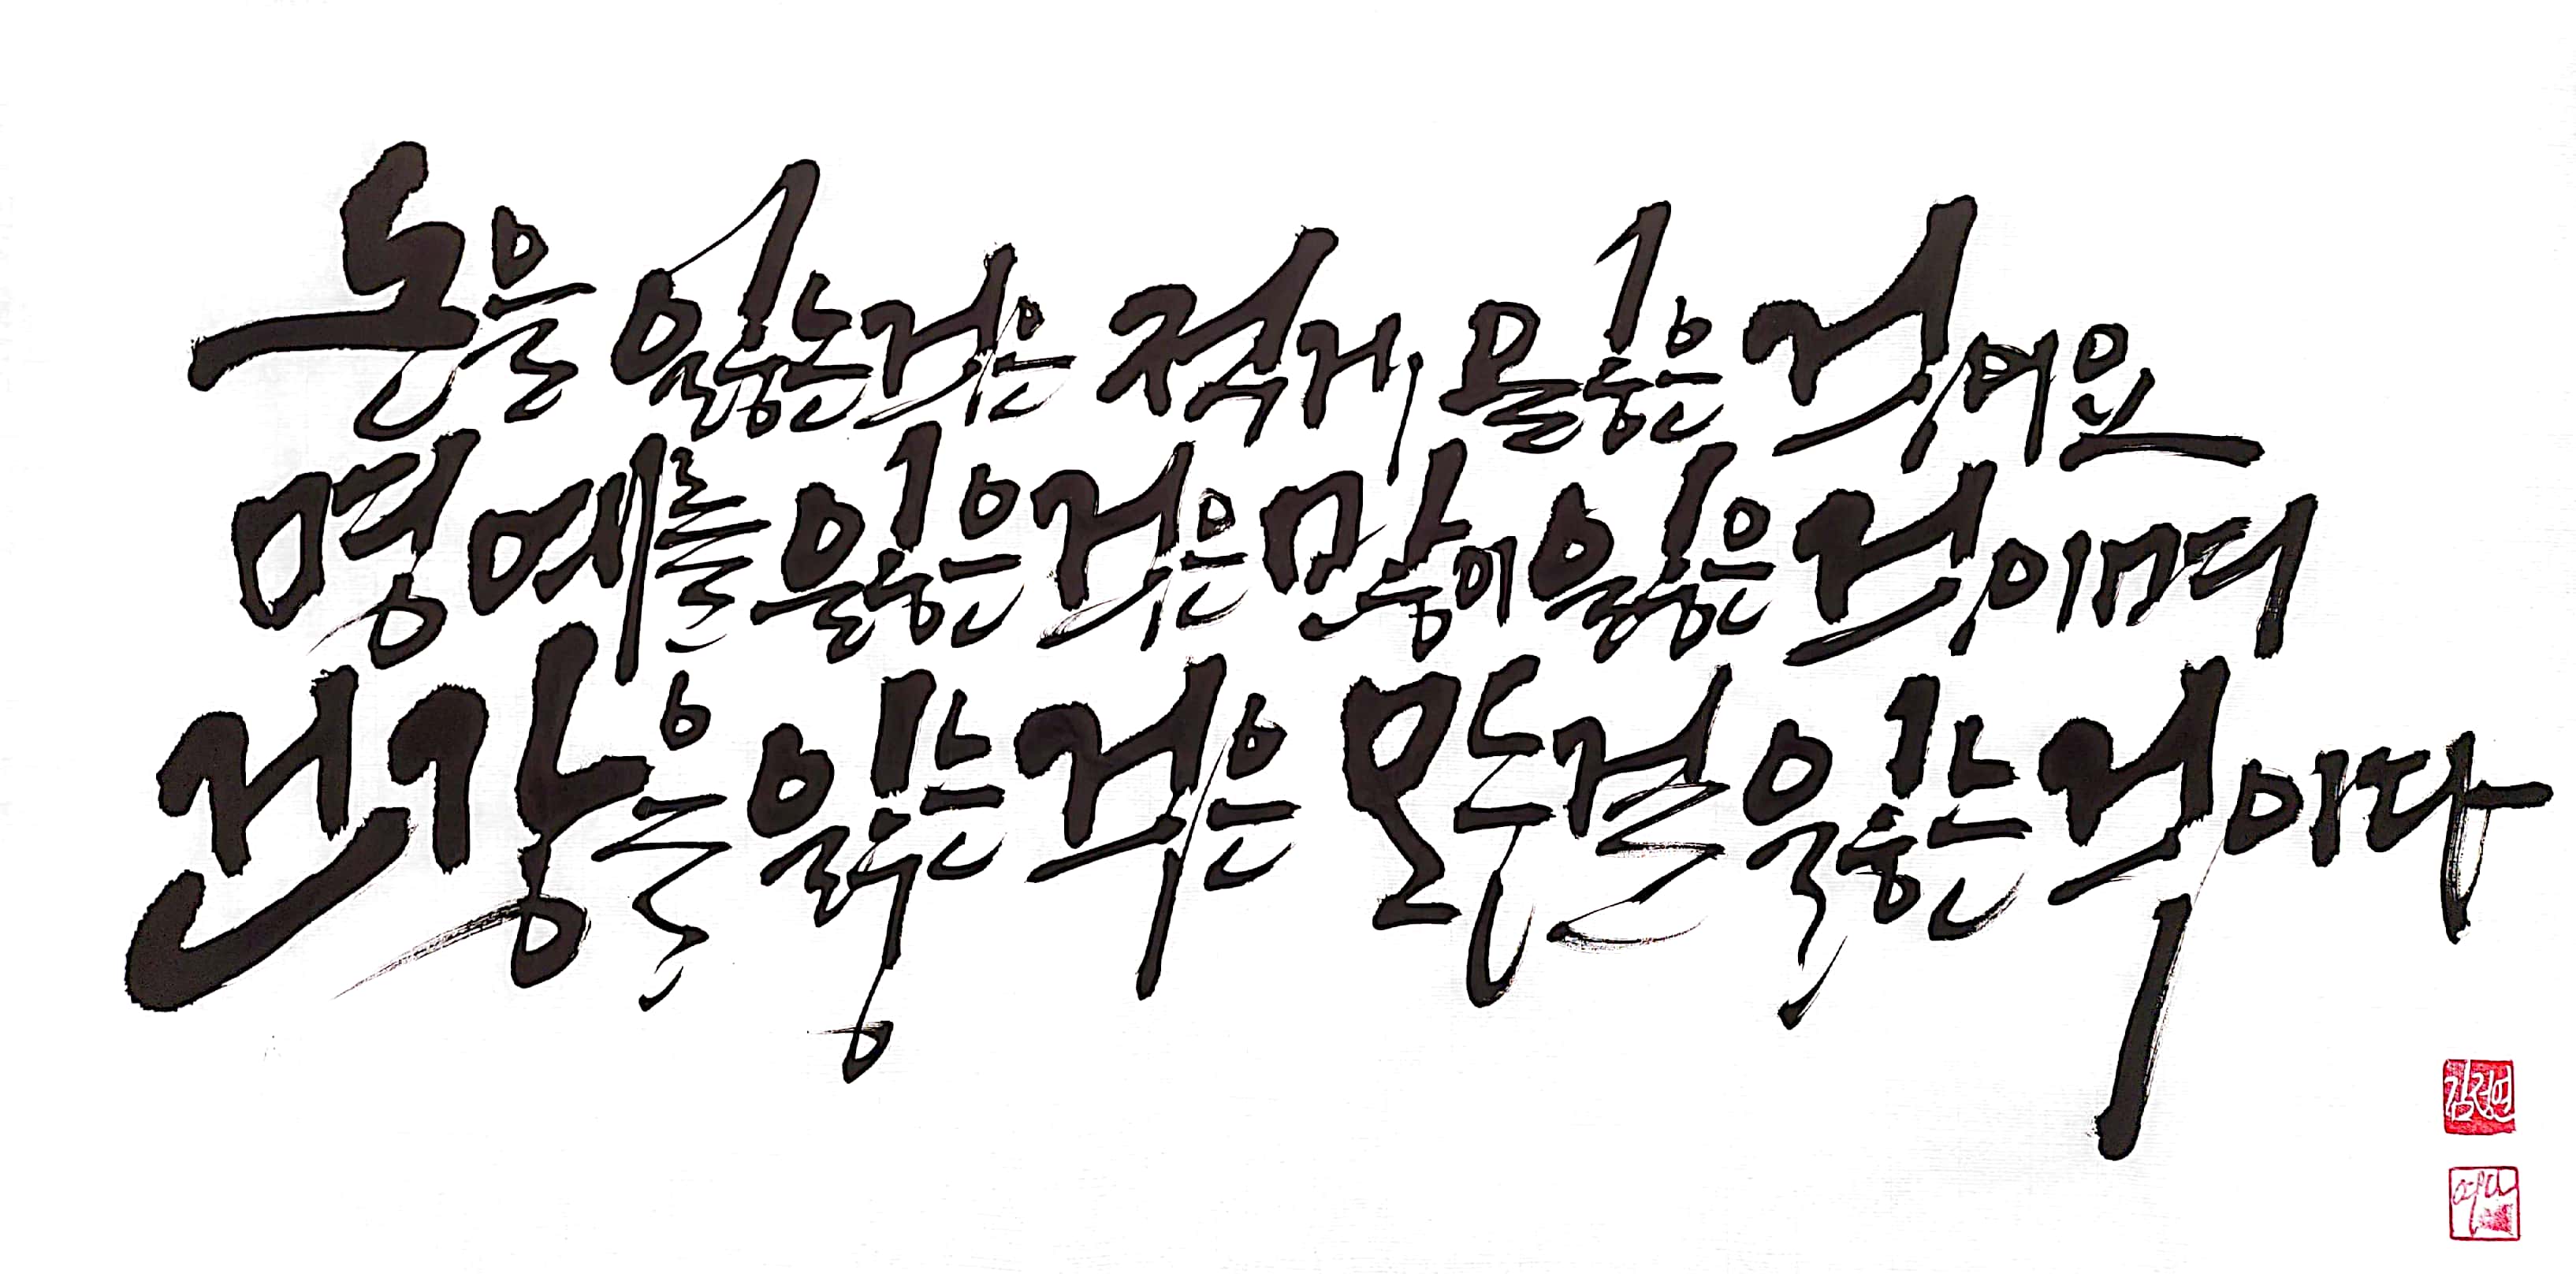 돈을 잃는것은 적게 잃은 것이요
명예를 잃은것은 많이 잃은것이며
건강을 잃는것은 모든걸 잃는것이다